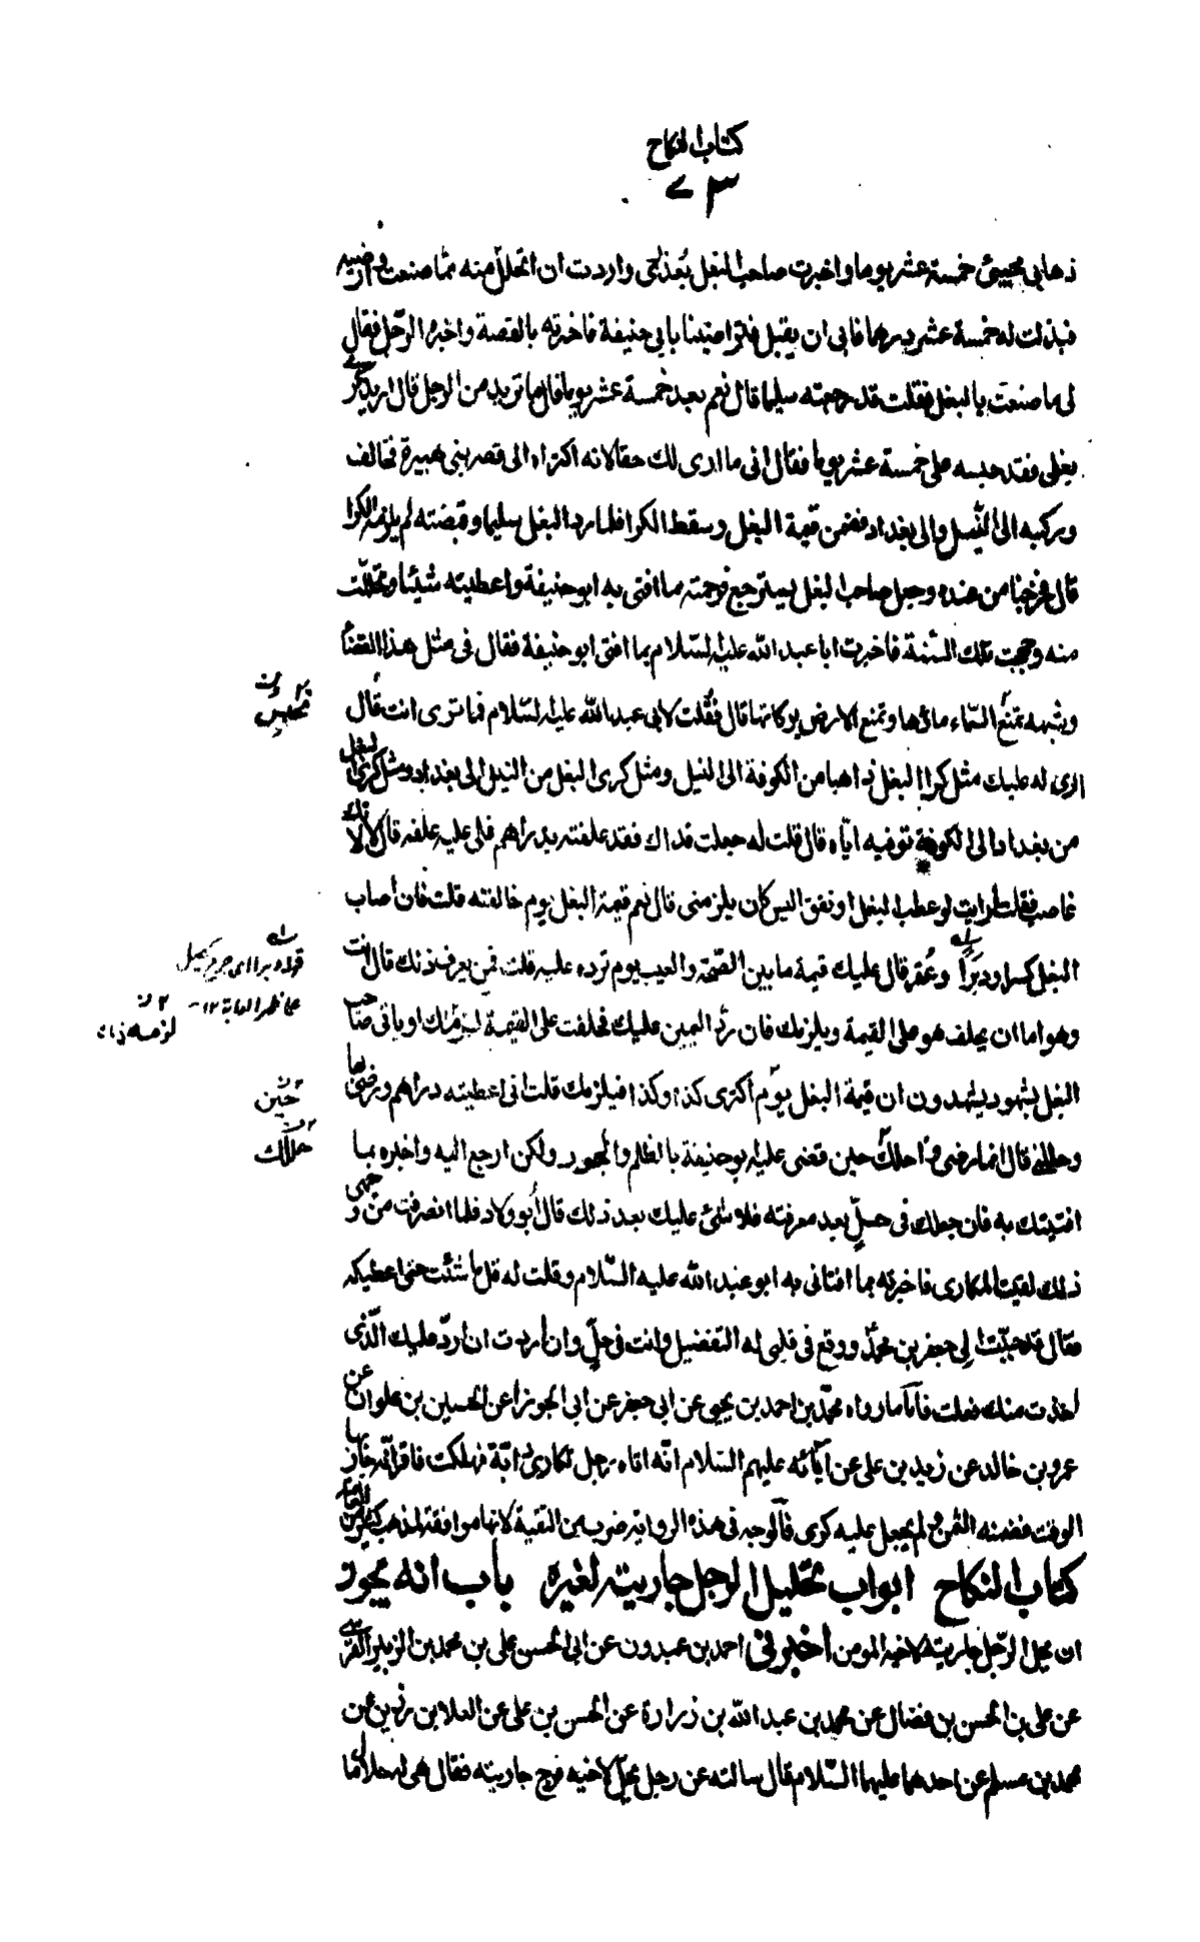 كتاب النكاح
٧٣
ذهابى ومجيئى خمسة عشر يوما واخبرت صاحب البغل بعذرى واردت ان اتحلل منه مما صنعت وارضيه
فبذلت له خمسة عشر درهما فابى ان يقبل فتراضينا بابى حنيفة فاخبرته بالقصة واخبره الرجل فقال
لى ما صنعت بالبغل فقلت قد رجعته سليما قال نعم بعد خمسة عشر يوما قال ما تريد من الرجل قال اريد كرى
بغلى فقد حبسه على خمسة عشر يوما فقال انى ما ارى لك حقا لانه اكتراه الى قصر بنى هبيرة فخالف
وركبه الى النيل والى بغداد فضمن قيمة البغل وسقط الكرا فلما رد البغل سليما وقبضته لم يلزمه الكرا
قال فخرجنا من عنده وجعل صاحب البغل يسترجع فرحمته مما افتى به ابو حنيفة واعطيته شيئا وتحللت
منه وحججت تلك السنة فاخبرت ابا عبد الله عليه السلام بما افتى ابو حنيفة فقال فى مثل هذا القضا
وشبهه تمنع السماء ماؤها وتمنع الارض بركاتها قال فقلت لابى عبد الله عليه السلام فما ترى انت قال
ارى له عليك مثل كرا البغل ذاهبا من الكوفة الى النيل ومثل كرى البغل من النيل الى بغداد ومثل كرى البغل
من بغداد الى الكوفة توفيه اياه قال قلت له جعلت فداك فقد علفته بدراهم فلى عليه علفه قال لا لانك
غاصب فقلت ارايت لو عطب البغل او نفق اليس كان يلزمنى قال نعم قيمة البغل يوم خالفته قلت فان اصاب
البغل كسر او دبرا وعقر قال عليك قيمة ما بين الصحة والعيب يوم ترده عليه قلت فمن يعرف ذلك قال انت
وهو اما ان يحلف هو على القيمة ويلزمك فان رد اليمين عليك فحلفت على القيمة لزمك او ياتى صاحب
البغل بشهود يشهدون ان قيمة البغل يوم اكترى كذا وكذا فيلزمك قلت انى اعطيته دراهم ورضى بها
وحللنى قال انما رضى واحلك حين قضى عليه ابو حنيفة بالظلم والجور ولكن ارجع اليه واخبره بما
افتيتك به فان جعلك فى حل بعد معرفته فلا شئ عليك بعد ذلك قال ابو ولاد فلما انصرفت من وجهى
ذلك لقيت المكارى فاخبرته بما افتانى به ابو عبد الله عليه السلام وقلت له قل ما شئت حتى اعطيكه
فقال قد حببت الى جعفر بن محمد ووقع فى قلبى له التفضيل وانت فى حل وان اردت ان ارد عليك الذى
اخذت منك فعلت فاما ما رواه محمد بن احمد بن يحيى عن ابى جعفر عن ابى الجوزا عن الحسين بن علوان عن
عمرو بن خالد عن زيد بن على عن آبائه عليهم السلام انه اتاه رجل تكارى دابة فهلكت فاقر انه جاز بها
الوقت فضمنه الثمن ولم يجعل عليه كرى فالوجه فى هذه الرواية ضرب من التقية لانها موافقة لمذهب كثير من العامة
كتاب النكاح ابواب تحليل الرجل جاريته لغيره باب انه يجوز
ان يحل الرجل جاريته لاخيه المومن اخبرنى احمد بن عبدون عن ابى الحسن على بن محمد بن الزبير القرشى
عن على بن الحسن بن فضال عن محمد بن عبد الله بن زرارة عن الحسن بن على عن العلا بن رزين عن
محمد بن مسلم عن احدهما عليهما السلام قال سالته عن رجل يحل لاخيه فرج جاريته فقال هى له حلال ما
لزمه ن
حين
حللك